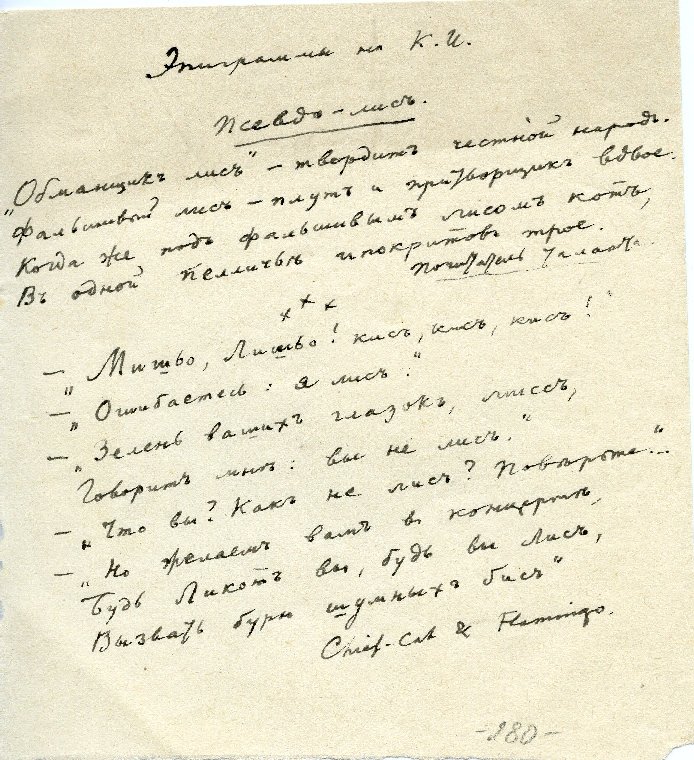 Эпиграммы на К.И.
Псевдо-лисъ.
"Обманщикъ лисъ" – твердитъ честной народъ.
Фальшивый лисъ – плутъ и притворщикъ вдвое.
Когда же подъ фальшивымъ лисомъ котъ,
Въ одной пелличьѣ ипокритовъ трое.
Почитатель
× × ×
– "Мишьо, Лишьо! кисъ, кисъ, кисъ!"
– "Ошибаетесь: я лисъ."
– "Зелень вашихъ глазокъ, миссъ,
Говоритъ мнѣ: вы не лисъ."
– "Что вы? Какъ не лисъ? Повѣрьте..."
– "Но желаемъ вамъ въ концертѣ,
Будь Ликотъ вы, будь вы Лисъ,
Вызвать бурю шумныхъ бисъ"
Chief-Cat & Flamingo.
-180-